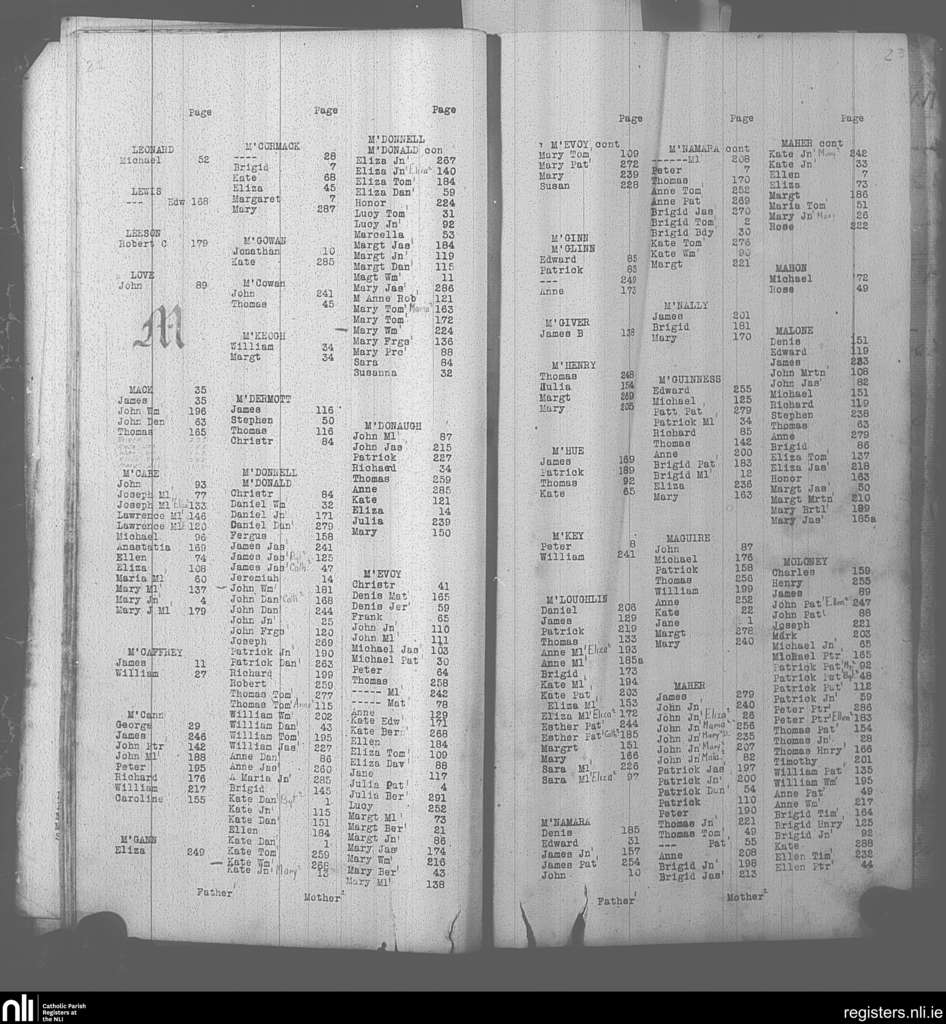 22
Page
LEONARD
Michael 52
LEWIS
--- Edw 168
LEESON
Robert C 179
LOVE
John 89
M
MACK 35
James 35
John Wm 196
John Den 63
Thomas 165
M'CABE
John 93
Joseph Ml 77
Joseph Ml' Eliza 133
Lawrence Ml' 146
Lawrence Ml' 120
Michael 96
Anastatia 169
Ellen 74
Eliza 108
Maria Ml 60
Mary Ml' 137
Mary Jn' 4
Mary J Ml 179
M'CAFFREY
James 11
William 27
M'Cann
George 29
James 246
John Ptr 142
John Ml' 188
Peter 195
Richard 176
William 217
Caroline 155
M'GANN
Eliza 249
Page
M'CORMACK
---- 28
Brigid 7
Kate 68
Eliza 45
Margaret 7
Mary 287
M'GOWAN
Jonathan 10
Kate 285
M'Cowan
John 241
Thomas 45
M'KEOGH
William 34
Margt 34
M'DERMOTT
James 116
Stephen 50
Thomas 116
Christr 84
M'DONNELL
M'DONALD
Christr 84
Daniel Wm 32
Daniel Jn' 171
Daniel Dan' 279
Fergus 158
James Jas' 241
James Jas' 125
James Jas' Cath. 47
Jeremiah 14
John Wm' 181
John Dan' Cath. 168
John Dan' 244
John Jn' 25
John Frgs 120
Joseph 269
Patrick Jn' 190
Patrick Dan' 263
Richard 199
Robert 259
Thomas Tom' 277
Thomas Tom' Anne 115
William Wm' 202
William Dan' 43
William Tom' 195
William Jas' 227
Anne Dan' 86
Anne Jas' 260
A Maria Jn' 285
Brigid 145
Kate Dan' Bgt 1
Kate Jn' 115
Kate Dan' 151
Ellen 184
Kate Dan' 1
Kate Tom' 259
Kate Wm' 268
Kate Jn' Mary 13
Page
M'DONNELL
M'DONALD con
Eliza Jn' 267
Eliza Jn' Eliza 140
Eliza Tom' 184
Eliza Dan' 59
Honor 224
Lucy Tom' 31
Lucy Jn' 92
Marcella 53
Margt Jas' 184
Margt Jn' 119
Margt Dan' 115
Magt Wm' 11
Mary Jas' 286
M Anne Rob' 121
Mary Tom' Maria 163
Mary Tom' 172
Mary Wm' 224
Mary Frgs' 136
Mary Prc' 88
Sara 84
Susanna 32
M'DONAUGH
John Ml' 87
John Jas 215
Patrick 227
Richard 34
Thomas 259
Anne 285
Kate 121
Eliza 14
Julia 239
Mary 150
M'EVOY
Christr 41
Denis Mat' 165
Denis Jer' 59
Frank 65
John Jn' 110
John Ml' 111
Michael Jas' 103
Michael Pat' 30
Peter 64
Thomas 258
----- Ml' 242
----- Mat 78
Anne 129
Kate Edw' 171
Kate Ber' 268
Ellen 184
Eliza Tom' 109
Eliza Dav' 88
Jane 117
Julia Pat' 4
Julia Ber' 291
Lucy 252
Margt Ml' 73
Margt Ber' 21
Margt Jn' 86
Mary Jas' 174
Mary Wm' 216
Mary Ber' 43
Mary Ml' 138
Father' Mother²
23
Page
M'EVOY cont
Mary Tom' 109
Mary Pat' 272
Mary 239
Susan 228
M'GINN
M'GLINN
Edward 85
Patrick 85
--- 249
Anne 173
M'GIVER
James B 138
M'HENRY
Thomas 248
Hulia 154
Margt 269
Mary 205
M'HUE
James 169
Patrick 189
Thomas 92
Kate 65
M'KEY
Peter 8
William 241
M'LOUGHLIN
Daniel 208
James 129
Patrick 219
Thomas 133
Anne Ml' Eliza 193
Anne Ml' 185a
Brigid 173
Kate Ml' 194
Kate Pat' 203
Eliza Ml' 153
Eliza Ml' Eliza 172
Esther Pat' 244
Esther Pat' Cath 185
Margrt 151
Mary 166
Sara Ml 226
Sara Ml' Eliza 97
M'NAMARA
Denis 185
Edward 31
James Jn' 157
James Pat' 254
John 10
Page
M'NAMARA cont
------Ml 208
Peter 7
Thomas 170
Anne Tom 252
Anne Pat 269
Brigid Jas' 270
Brigid Tom' 2
Brigid Bdy 30
Kate Tom' 276
Kate Wm' 90
Margt 221
M'NALLY
James 201
Brigid 181
Mary 170
M'GUINNESS
Edward 255
Michael 125
Patt Pat' 279
Patrick Ml 34
Richard 85
Thomas 142
Anne 200
Brigid Pat' 183
Brigid Ml' 12
Eliza 236
Mary 163
MAGUIRE
John 87
Michael 176
Patrick 158
Thomas 256
William 199
Anne 252
Kate 22
Jane 1
Margt 278
Mary 240
MAHER
James 279
John Jn' 240
John Jn' Eliza 26
John Jn' Maria 256
John Jn' Mary 235
John Jn' Mary 207
John Jn' 82
Patrick Jas' 197
Patrick Jn' 200
Patrick Dun' 54
Patrick 110
Peter 190
Thomas Jn' 221
Thomas Tom' 49
--- Pat' 55
Anne 208
Brigid Jn' 198
Brigid Jas' 213
Page
MAHER cont
Kate Jn' Mary 242
Kate Jn' 33
Ellen 7
Eliza 73
Margt 186
Maria Tom' 51
Mary Jn' 26
Rose 222
MAHON
Michael 72
Rose 49
MALONE
Denis 151
Edward 119
James 233
John Mrtn' 108
John Jas' 82
Michael 151
Richard 119
Stephen 238
Thomas 63
Anne 279
Brigid 86
Eliza Tom' 137
Eliza Jas' 218
Honor 163
Margt Jas' 50
Margt Mrtn' 210
Mary Brtl' 199
Mary Jas' 185a
MOLONEY
Charles 159
Henry 255
James 89
John Pat' Ellen 247
John Pat' 88
Joseph 221
Mark 203
Michael Jn' 65
Michael Ptr' 165
Patrick Pat' 92
Patrick Pat' 48
Patrick Put' 112
Patrick Jn' 59
Peter Ptr' 286
Peter Ptr' Ellen 183
Thomas Pat' 154
Thomas Jn' 28
Thomas Hnry' 166
Timothy 201
William Pat' 135
William Wm' 195
Anne Pat' 49
Anne Wm' 217
Brigid Tim' 164
Brigid Hnry' 125
Brigid Jn' 92
Kate 288
Ellen Tim' 232
Ellen Ptr' 44
Father' Mother²
nli
Catholic Parish
Registers at
the NLI
registers.nli.ie